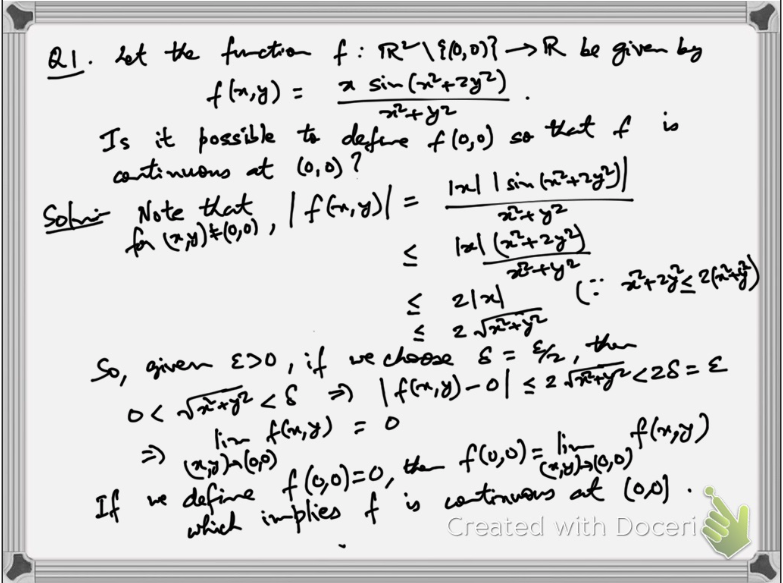 Q1. Let the function f : ℝ² \ {(0,0)} → ℝ be given by
f(x,y) = x sin(x²+2y²) / x²+y² .
Is it possible to define f(0,0) so that f is
continuous at (0,0) ?
Soln:- Note that for (x,y)≠(0,0), |f(x,y)| = |x| |sin(x²+2y²)| / x²+y²
≤ |x| (x²+2y²) / x²+y²
≤ 2|x| (∵ x²+2y² ≤ 2(x²+y²)
≤ 2 √x²+y²
So, given ε>0, if we choose δ = ε/2, then
0 < √x²+y² < δ ⇒ |f(x,y) - 0| ≤ 2 √x²+y² < 2δ = ε
⇒ lim (x,y)→(0,0) f(x,y) = 0
If we define f(0,0)=0, then f(0,0) = lim (x,y)→(0,0) f(x,y)
which implies f is continuous at (0,0) .
Created with Doceri